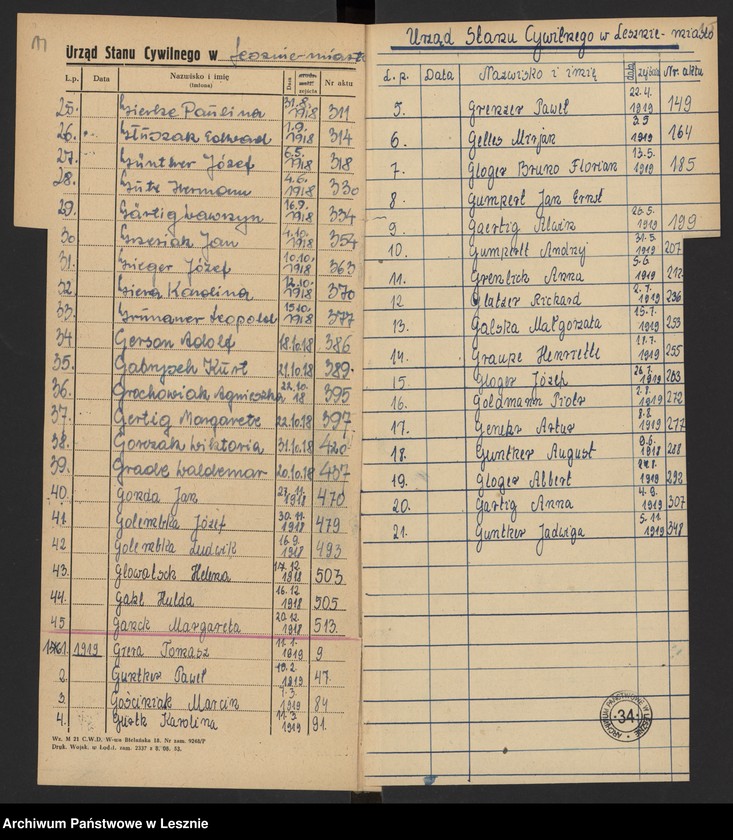 Urząd Stanu Cywilnego w Lesznie-miasto
L.p. Data Nazwisko i imię Data zejścia Nr aktu
25. Paulina 31.8. 1918 311
26. Edward 7.9. 1918 314
27. Günther Józef 6.5. 1918 318
28. Hermann 4.6. 1918 330
29. Gärtig Wawrzyn 16.9. 1918 334
30 Grzesiak Jan 1.10. 1918 354
31. Józef 10.10. 1918 363
32. Giera Karolina 12.10. 1918 370
33. Grünauer Leopold 15.10. 1918 377
34 Gerson Adolf 18.10.18 386
35. Gabrysch Kurt 21.10.18 389.
36. Grochowiak Agnieszka 22.10. 18 395
37. Gertig Margarete 22.10.18 397
38. Gorczak Wiktoria 31.10.18 420
39. Grade Waldemar 20.10.18 437
40. Gorda Jan 1918 470
41 Golembka Józef 30.11. 1918 479
42 Golembka Ludwik 16.9. 1918 493
43. Glowatsch Helena 12. 1918 503
44. Gahl Hulda 16.12 1918 505
45 Ganck Margareta 20.12 1918 513.
1. 1919 Grera Tomasz 11.1. 1919 9
2. Gunther Paweł 19.2. 1919 47
3. Gościniak Marcin 7.3. 1919 84
4. Gustk Karolina 11.3. 1919 91.
Wz. M 21 C.W.D. W-wa Bielańska 18. Nr zam. 9240/P
Druk. Wojsk. w Łodzi. zam. 2337 z 8. 08. 53.
Urząd Stanu Cywilnego w Lesznie-miasto
L.p. Data Nazwisko i imię data zejścia Nr. aktu
5. Grenzer Paweł 22.4. 1919 149
6. Gelles Mirjan 3.5 1919 164
7. Gloger Bruno Florian 13.5. 1919 185
8. Gumpert Jan Ernst
9. Gaertig Alwin 26.5. 1919 199
10. Gumpert Andrzej 31.5. 1919 207
11. Grenlich Anna 5.6. 1919 212
12 Glatzer Richard 2.7. 1919 236
13. Galska Małgorzata 15.7. 1919 253
14. Grauze Henriette 17.7. 1919 255
15. Gloger Józef 26.7. 1919 263
16. Goldmann Piotr 2.8. 1919 272
17. Gencker Artur 8.8. 1919 277
18. Gunther August 9.6. 1918 288
19. Gloger Albert 1919 292
20. Gartig Anna 4.9. 1919 307
21. Gunther Jadwiga 5.11. 1919 348
ARCHIWUM PAŃSTWOWE W LESZNIE
34
Archiwum Państwowe w Lesznie